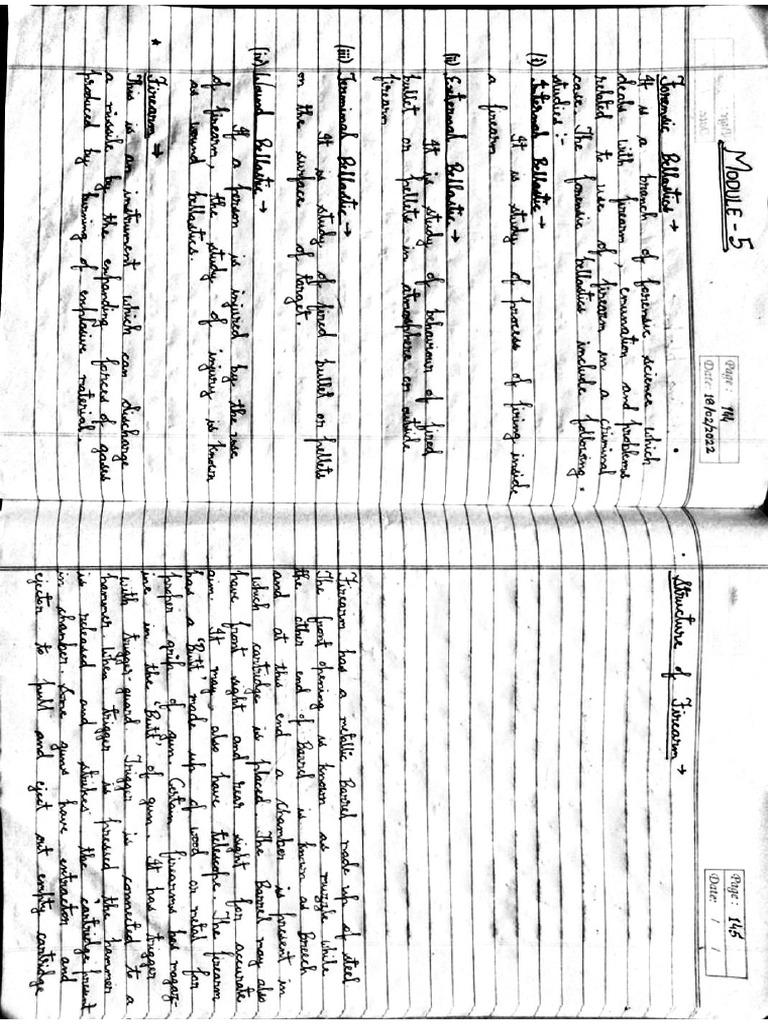 MODULE - 5
Page: 144
Date: 18/02/2022
Forensic Bellastics →
It is a branch of forensic science which
deals with firearm, emunation and problems
related to use of firearm in a criminal
case. The forensic bellastics include following
studies:-
(i) Internal Bellastic →
It is study of process of firing inside
a firearm
(ii) External Bellastic →
It is study of behaviour of fired
bullet or pellets in atmosphere or outside
firearm
(iii) Terminal Bellastic →
It is study of fired bullet or pellets
on the surface of target.
(iv) Wound Bellastic →
If a person is injured by the use
of firearm, the study of injury is known
as wound bellastics.
* Firearm →
This is an instrument which can discharge
a missile by the expanding forces of gases
produced by burning of explosive material.
Page: 145
Date: / /
Structure of Firearm →
Firearm has a metallic Barrel made up of steel
The front opening is known as muzzle while
the other end of Barrel is known as Breech
and at this end a chamber is present in
which cartridge is placed. The Barrel may also
have front sight and rear sight for accurate
aim. It may also have telescope. The firearm
has a 'Butt' made up of wood or metal for
proper grip of gun. Certain firearms has magaz-
ine in the 'Butt' of gun. It has trigger
with trigger-guard. Trigger is connected to a
hammer. When trigger is pressed the hammer
is released and strikes the cartridge present
in chamber. Some guns have extraction and
ejector to pull and eject out empty cartridge